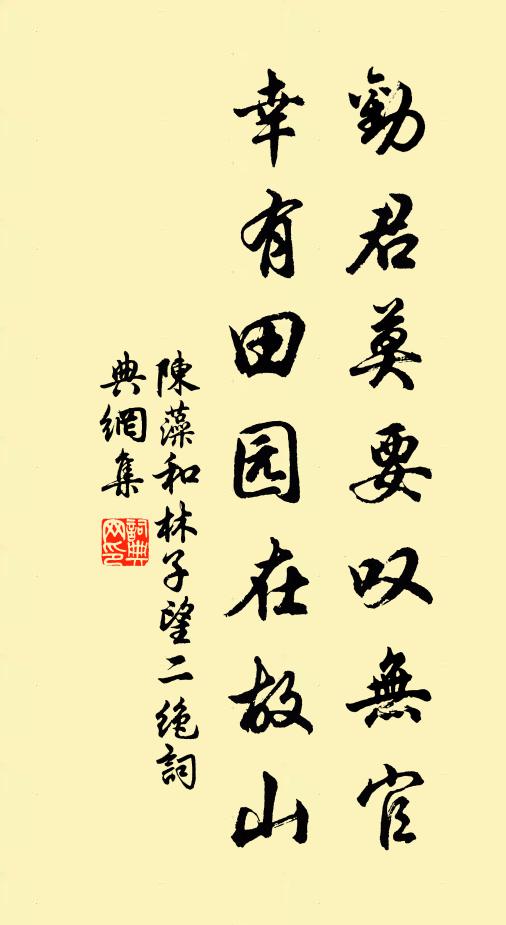 勸君莫要叹無官
幸有田园在故山
陳藻和林子望二绝詞
典網集
詞典网印